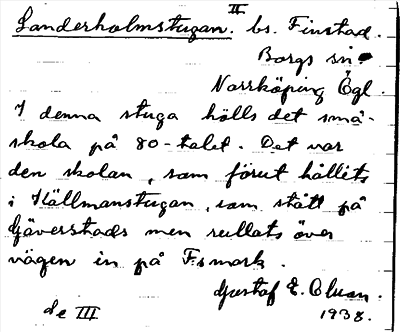 II
Sanderholmstugan. bs. Finstad.
Borgs sn
Norrköping Ögl.
I denna stuga hölls det små-
skola på 80-talet. Det var
den skolan, som förut hållits
i Hällmanstugan, som stått på
Gäverstads men rullats över
vägen in på F:s mark.
Gustaf E. Cluan.
1938.
de III